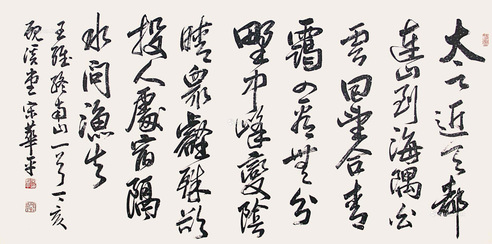 太乙近天都
連山到海隅白
雲回望合青
靄入看無分
野中峰變陰
晴眾壑殊欲
投人處宿隔
水問漁夫
王維終南山一首丁亥
硯溪堂宋華平